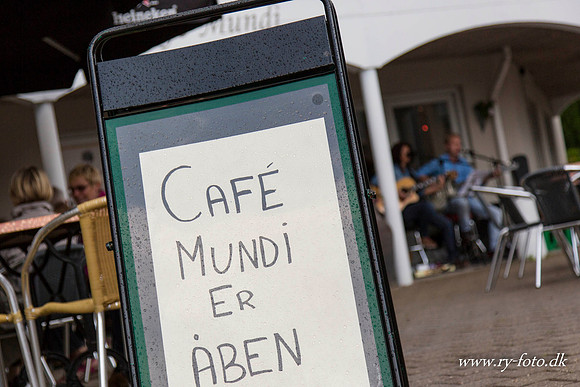 Heineken
Mundi
CAFÉ
MUNDI
ER
ÅBEN
www.ry-foto.dk